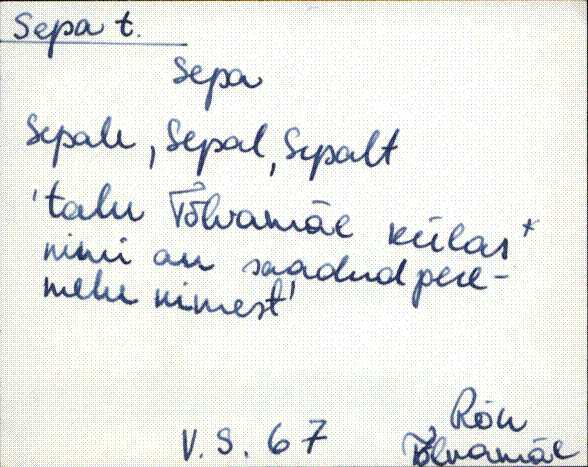 Sepa t.
Sepa
Sepale, Sepal, Sepalt
'talu Tõlvamäe külas*
nimi on saadud pere-
mehe nimest'
V.S. 67
Rõu
Tõlvamäe